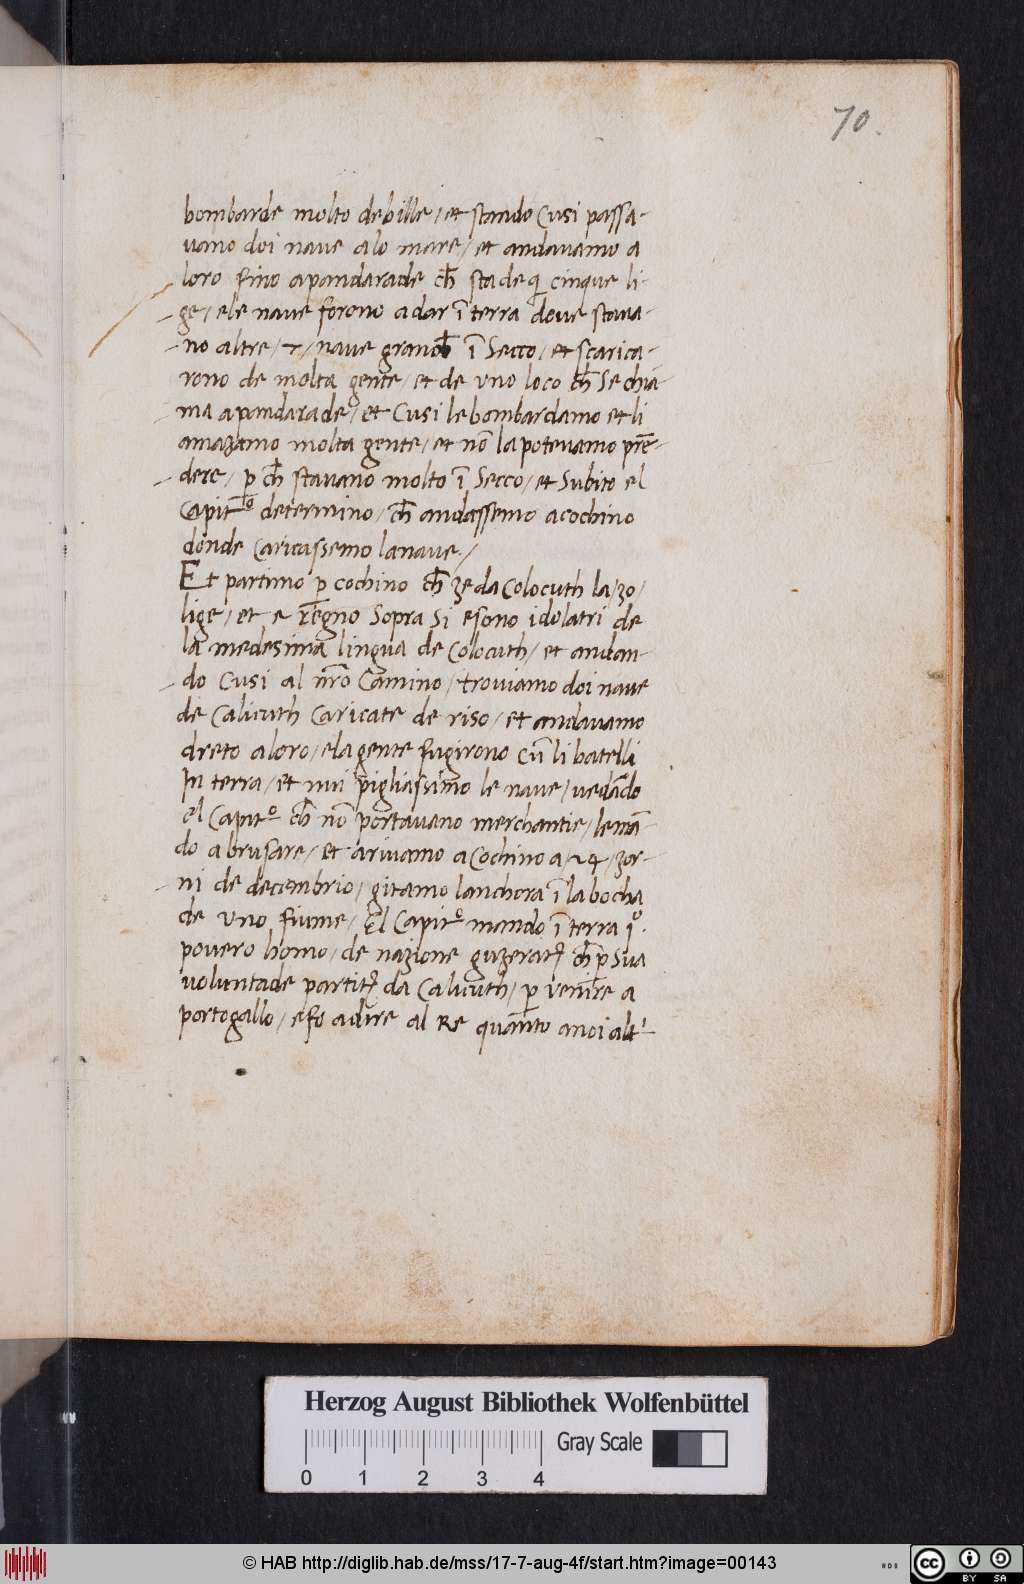 70.
bombarde molto debille / et stando Cusi passa-
uano doi naue alo mare / et andauamo a
loro fino apandarade ch̄ sta de q̄ cinque li-
ge / ele naue forono adar ī terra doue staua-
no altre / naue grand ī Secco / et scarica-
rono de molta gente / et de vno loco ch̄ Se chia-
ma apandarade / et Cusi le bombardamo et li
amazamo molta gente / et nō la poteuamo prē-
dere / p ch̄ stauano molto ī Secco / et Subito el
Capit determino / ch̄ andassemo acochino
donde Caricassemo lanaue /
Et partimo p cochino ch̄ ze da Colocuth la / 30 /
lige / et e regno Sopra Si esono idolatri de
la medesima lingua de Colocuth / et andan-
do Cusi al nr̄o Camino / trouiamo doi naue
de Calicuth Caricate de riso / et andauamo
dreto aloro / ela gente fugirono cū li batelli
In terra / et nui pigliassimo le naue / vedādo
el Capit.o ch̄ nō portauano merchantie / le mā-
do abrusare / et ariuamo aCochino a / 24 / zor-
ni de decembrio / gitamo lanchora ī la bocha
de vno fiume / El Capit.o mando ī terra i.o
pouero homo / de nazione guzerat ch̄ p Sua
voluntade partit da Calicuth / p venire a
portogallo / e fo adire al Re quanto anoi alt-
Herzog August Bibliothek Wolfenbüttel
Gray Scale
0 1 2 3 4
© HAB http://diglib.hab.de/mss/17-7-aug-4f/start.htm?image=00143
cc BY SA